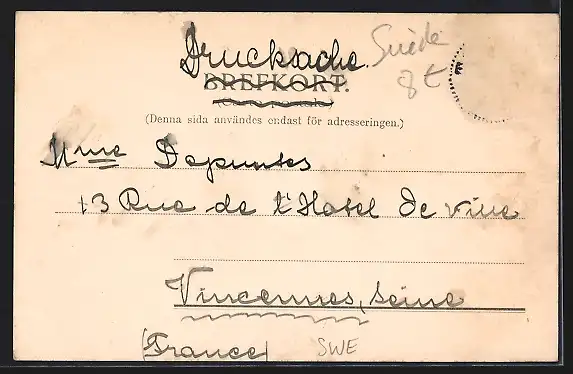 Drucksache.
Suède
8 t
BREFKORT.
(Denna sida användes endast för adresseringen.)
Mme Depuntes
13 Rue de l'Hotel de Ville
Vincennes, Seine
(France)
SWE